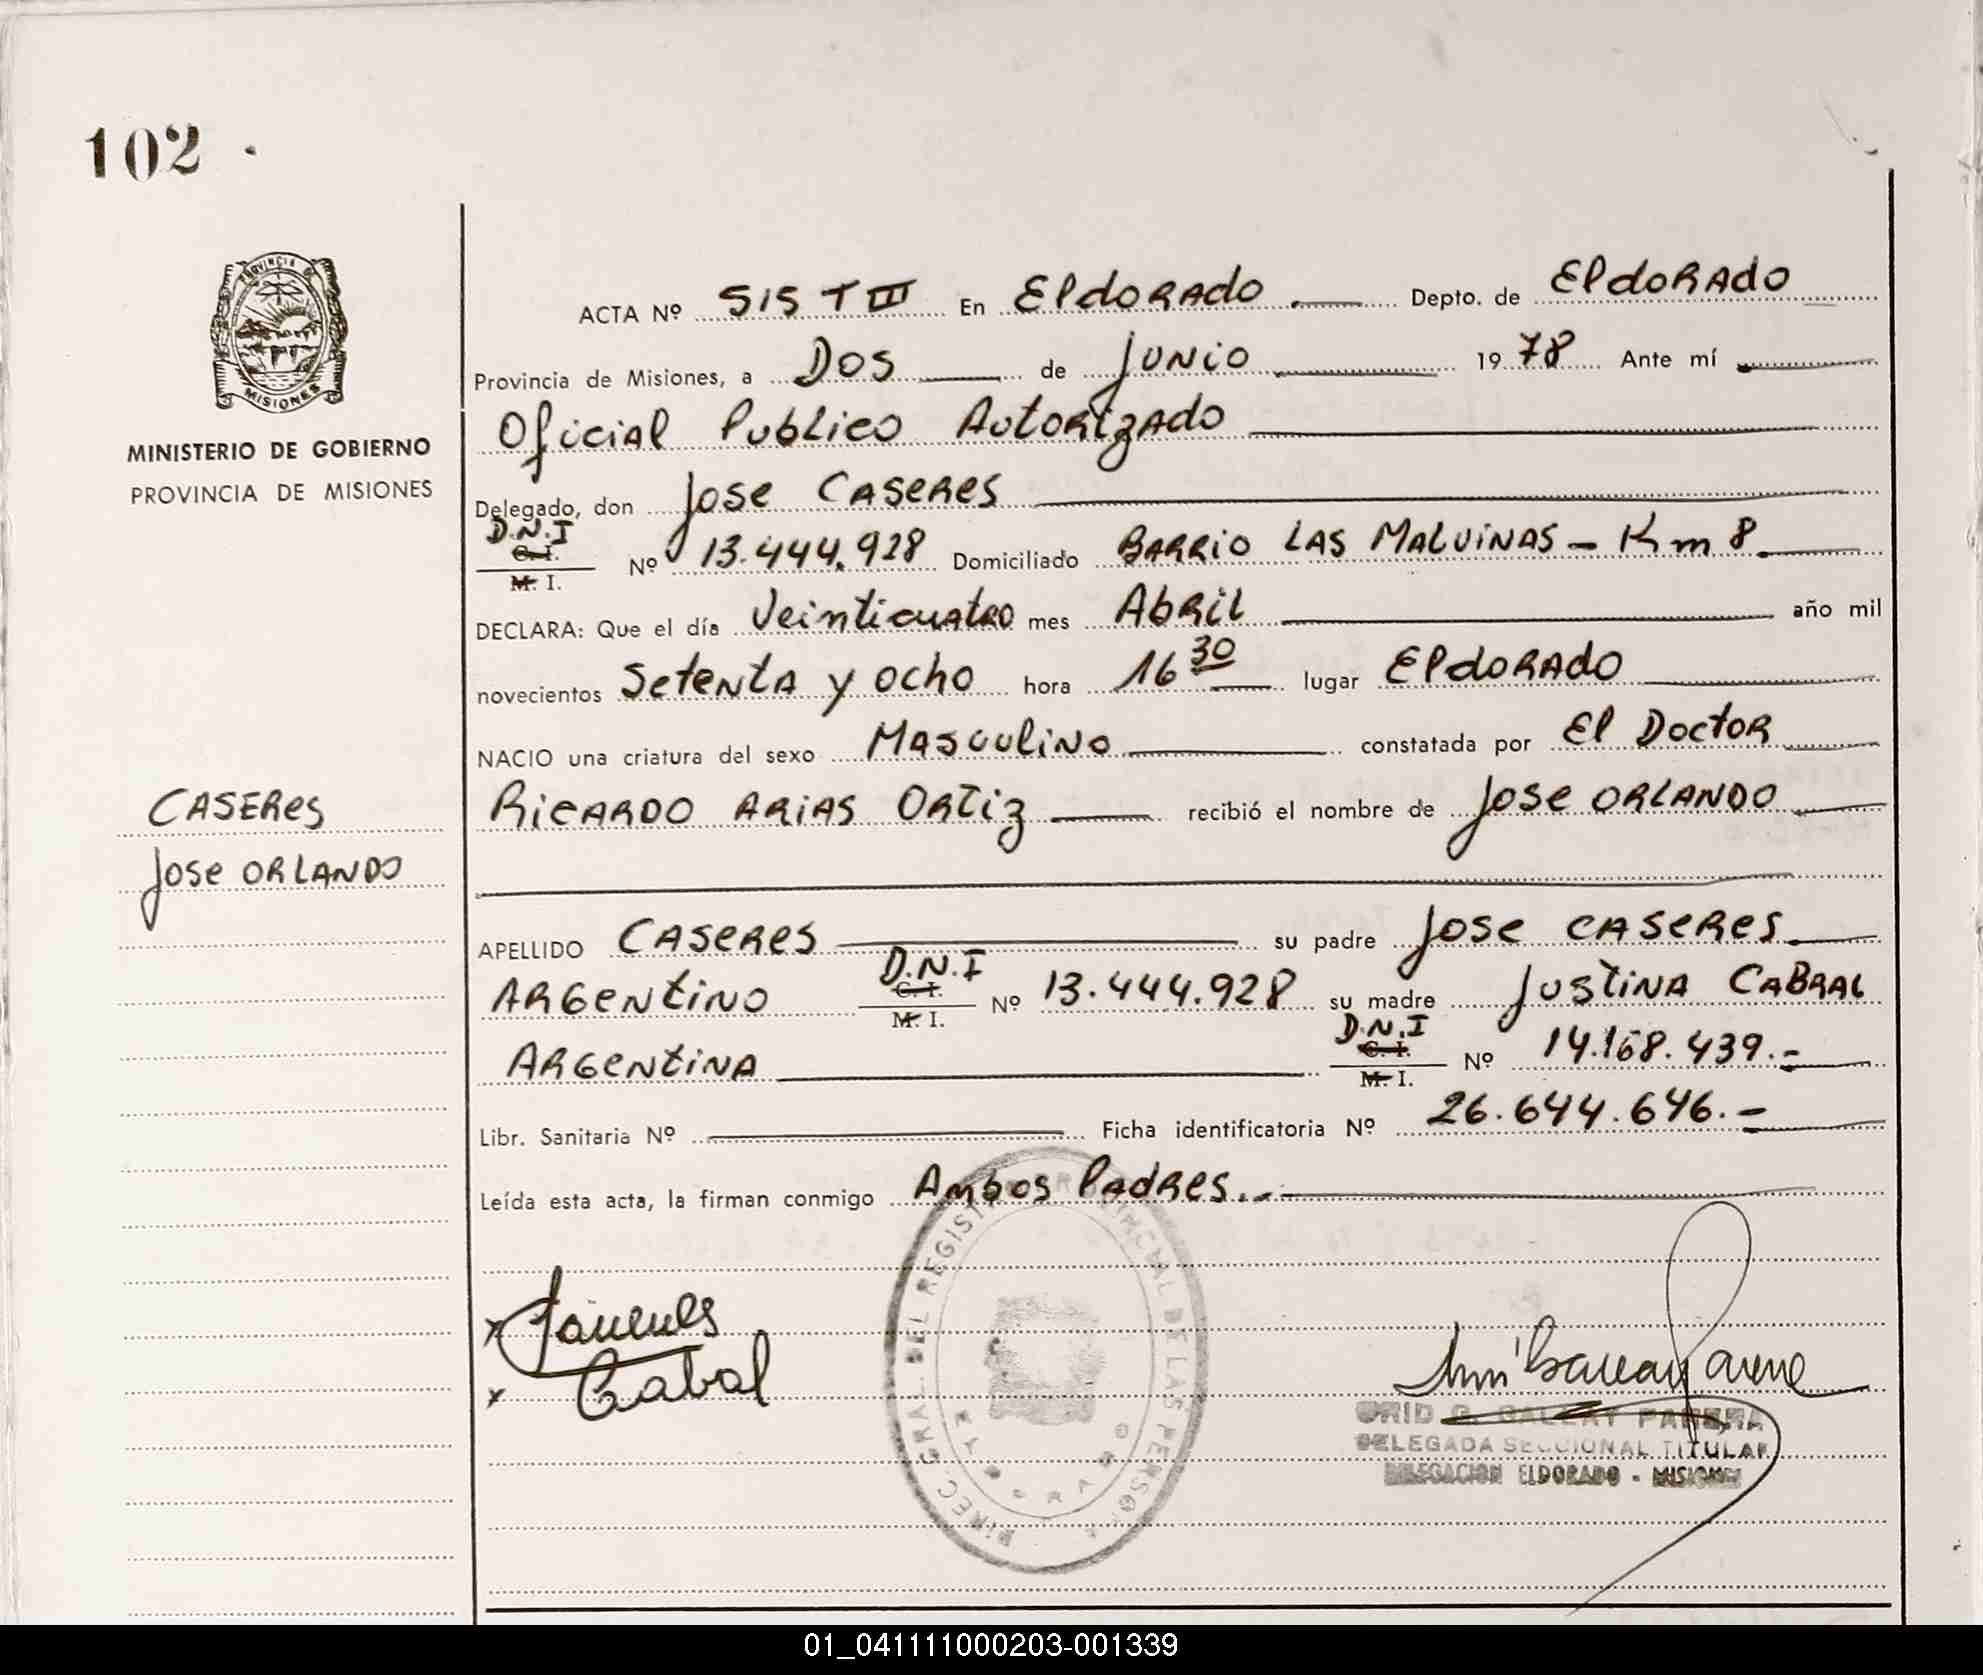 102
PROVINCIA DE
MISIONES
MINISTERIO DE GOBIERNO
PROVINCIA DE MISIONES
CASERES
JOSE ORLANDO
ACTA Nº 515 T III En Eldorado Depto. de Eldorado
Provincia de Misiones, a Dos de Junio 1978 Ante mí
Oficial Publico Autorizado
Delegado, don Jose Caseres
D.N.I
C. I.
M. I.
Nº 13.444.928 Domiciliado Barrio Las Malvinas - Km 8.
DECLARA: Que el día Veinticuatro mes Abril año mil
novecientos Setenta y ocho hora 16 30 lugar Eldorado
NACIO una criatura del sexo Masculino constatada por El Doctor
Ricardo Arias Ortiz recibió el nombre de Jose Orlando
APELLIDO Caseres su padre Jose Caseres
Argentino D.N.I C. I. M. I. Nº 13.444.928 su madre Justina Cabral
Argentina D.N.I C. I. M. I. Nº 14.168.439.-
Libr. Sanitaria Nº Ficha identificatoria Nº 26.644.646.-
Leída esta acta, la firman conmigo Ambos Padres.-
DIREC. GRAL. DEL REGISTRO PROVINCIAL DE LAS PERSONAS
ELDORADO
x
x Cabral
DELEGADA SECCIONAL TITULAR
DELEGACION ELDORADO - MISIONES
01_041111000203-001339